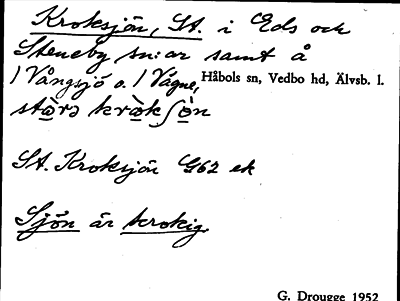 Kroksjön, St. i Eds och
Steneby sn:ar samt å
/ Vångsjö o. / Vågne, Håbols sn, Vedbo hd, Älvsb. l.
St. Kroksjön G62 ek
Sjön är krokig.
G. Drougge 1952